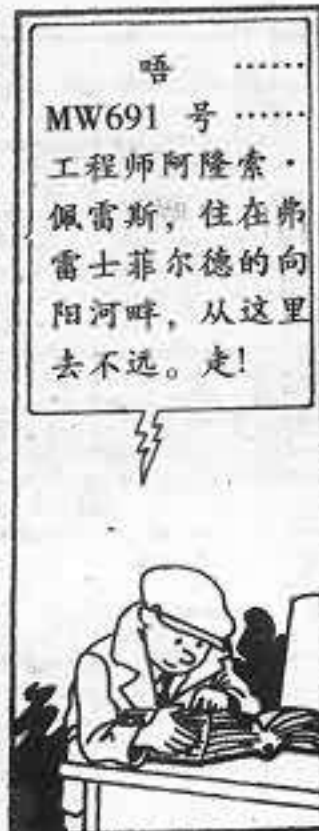 唔 ……
MW691 号 ……
工程师阿隆索·
佩雷斯，住在弗
雷士菲尔德的向
阳河畔，从这里
去不远。走！